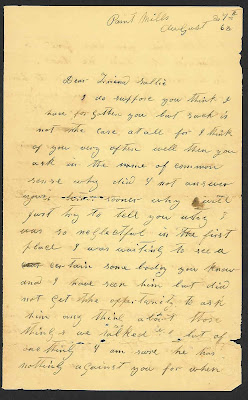 Paint Mills
August 27th
62
Dear Friend Sallie
I do suppose you think I
have forgotten you but such is
not the case at all for I think
of you very often well then you
ask in the name of common
sense why did I not answer
yours sooner why I will
just try to tell you why I
was so neglectful in the first
place I was waiting to see a
certain some body you know
and I have seen him but did
not get the opportunity to ask
him any thing about those
things we talked of
any thing I am sure he has
nothing against you for when